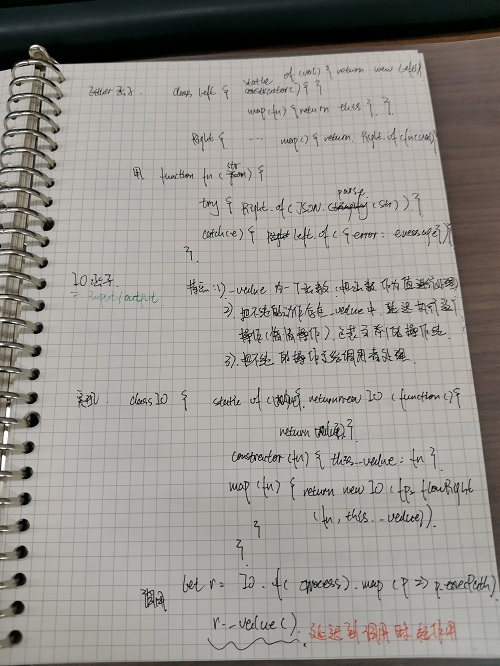 Either函子. class Left { static of (val) { return new Left(
constructor() { }
map(fn) { return this }. }.
Right { ... map() { return Right.of(fn(val))
用 function fn (str) {
try { Right.of(JSON.parse(str)) }
catch(e) { Left.of({ error: e.message }) }
}.
IO函子 特点: 1) _value为一个函数, 把函数作为值进行处理
= input/output 2) 把不纯的动作存在_value中, 延迟执行这个
操作(惰性操作),
3) 把不纯的操作交给调用者处理.
实现. class IO { static of (value) { return new IO (function() {
return value} }
constructor(fn) { this._value = fn }
map(fn) { return new IO (fp.flowRight
(fn, this._value)).
}
}.
调用 let r = IO.of(process).map(p => p.execPath).
r._value(). 延迟到调用时